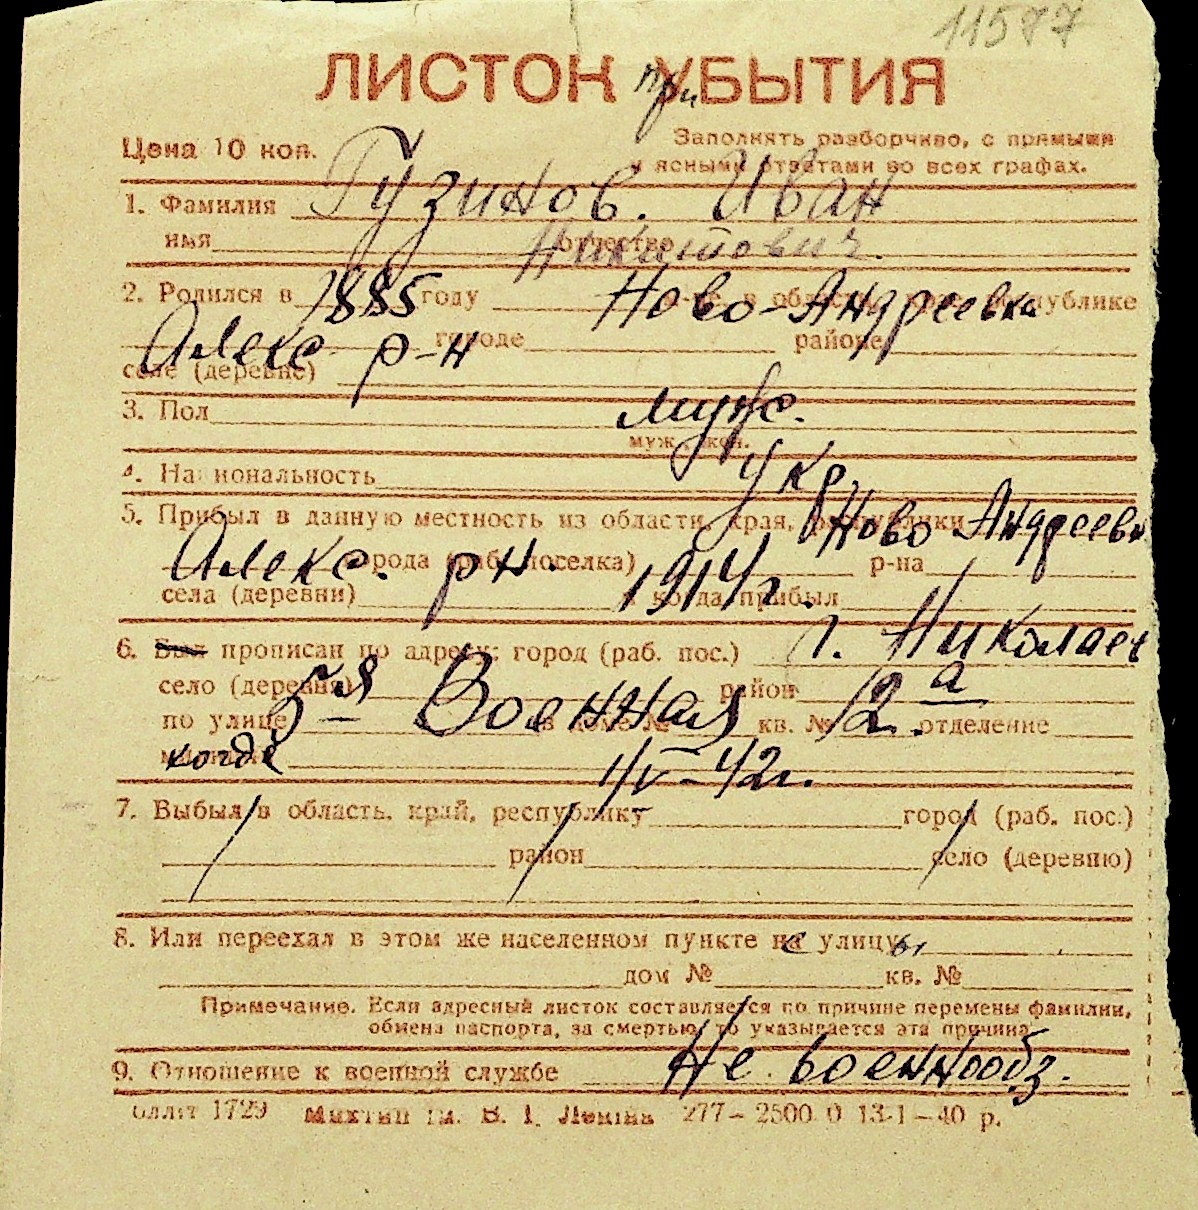 11577
ЛИСТОК при УБЫТИЯ
Цена 10 коп. Заполнять разборчиво, с прямыми
и ясными ответами во всех графах.
1. Фамилия Гузинов. Иван
имя отчество Никитович.
2. Родился в 1885 году Ново-Андреевка в области, крае, республике
Алекс р-н городе районе
селе (деревне)
3. Пол муж.
муж., жен.
4. Национальность укр.
5. Прибыл в данную местность из области, края, республики Ново Андреевк
Алекс. р н. города (раб. поселка) р-на
села (деревни) и когда прибыл 1914 г.
6. Был прописан по адресу: город (раб. пос.) г. Николаев
село (деревня) район
по улице 5-я Военная в доме № кв. № 2а отделение
милиции когда 1/V-42 г.
7. Выбыл в область, край, республику город (раб. пос.)
район село (деревню)
8. Или переехал в этом же населенном пункте на с улицу ы
дом № кв. №
Примечание. Если адресный листок составляется по причине перемены фамилии,
обмена паспорта, за смертью, то указывается эта причина
9. Отношение к военной службе Не военнообз.
1729 Миктип Ім. В. І. Леніна 277–2500.0 13-1–40 р.